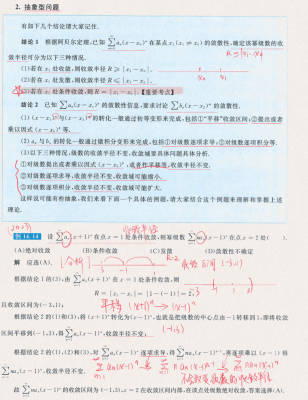 2. 抽象型问题
有如下几个结论请大家记住.
结论 1 根据阿贝尔定理,已知 ∑aₙ(x−x₀)ⁿ 在某点 x₁(x₁≠x₀) 的敛散性,确定该幂级数的收
敛半径可分为以下三种情况.
(1)若在 x₁ 处收敛,则收敛半径 R≥|x₁−x₀|.
(2)若在 x₁ 处发散,则收敛半径 R≤|x₁−x₀|.
(3)若在 x₁ 处条件收敛,则 R=|x₁−x₀|.【重要考点】
结论 2 已知 ∑aₙ(x−x₁)ⁿ 的敛散性信息,要求讨论 ∑bₙ(x−x₂)ᵐ 的敛散性.
(1) (x−x₁)ⁿ 与 (x−x₂)ᵐ 的转化一般通过初等变形来完成,包括①“平移”收敛区间;②提出或者
乘以因式 (x−x₀)ᵏ 等.
(2) aₙ 与 bₙ 的转化一般通过微积分变形来完成,包括①对级数逐项求导;②对级数逐项积分等.
(3) 以下三种情况,级数的收敛半径不变,收敛域要具体问题具体分析.
①对级数提出或者乘以因式 (x−x₀)ᵏ,或者作平移等,收敛半径不变.
②对级数逐项求导,收敛半径不变,收敛域可能缩小.
③对级数逐项积分,收敛半径不变,收敛域可能扩大.
这样说可能有些抽象,我们来看下面一个具体的例题,请大家结合这个例题来理解和掌握上述
理论.
收敛半径
例 14.14 设 ∑aₙ(x+1)ⁿ 在点 x=1 处条件收敛,则幂级数 ∑naₙ(x−1)ⁿ 在点 x=2 处( ).
(A)绝对收敛 (B)条件收敛 (C)发散 (D)敛散性不确定
解 应选(A).
收敛区间 (−3,1)
根据结论 1 的(3),由 ∑aₙ(x+1)ⁿ 在 x=1 处条件收敛,则
R=|x₁−x₀|=|1−(−1)|=2,
且收敛区间为(−3,1);
平移 (x+1)ⁿ → (x−1)ⁿ
根据结论 2 的(1)和(3),将(x+1)ⁿ转化为(x−1)ⁿ,也就是把级数的中心点由−1转移到1,即将收敛
区间平移到(−1,3),得 ∑aₙ(x−1)ⁿ,收敛半径不变;
(−1,3)
根据结论 2 的(1),(2)和(3),对 ∑aₙ(x−1)ⁿ 逐项求导,得 ∑naₙ(x−1)ⁿ⁻¹,再逐项乘以 (x−1) 得
∑naₙ(x−1)ⁿ,收敛半径不变.
故 ∑naₙ(x−1)ⁿ 的收敛区间为(−1,3),x=2 在收敛区间内部,故该点处级数绝对收敛,答案选择(A).